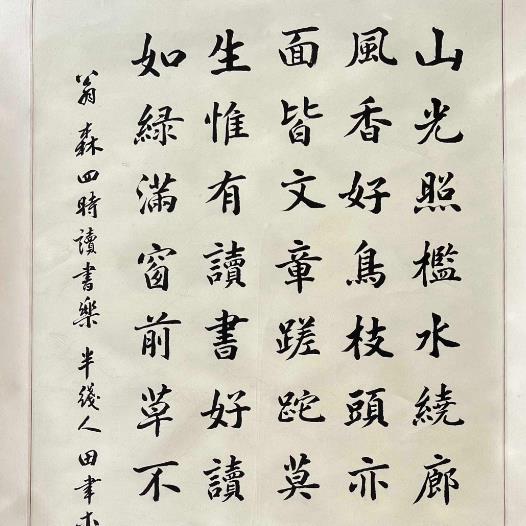 山光照檻水繞廊
風香好鳥枝頭亦
面皆文章蹉跎莫
生惟有讀書好讀
如綠滿窗前草不
翁森四時讀書樂 半綫人田聿